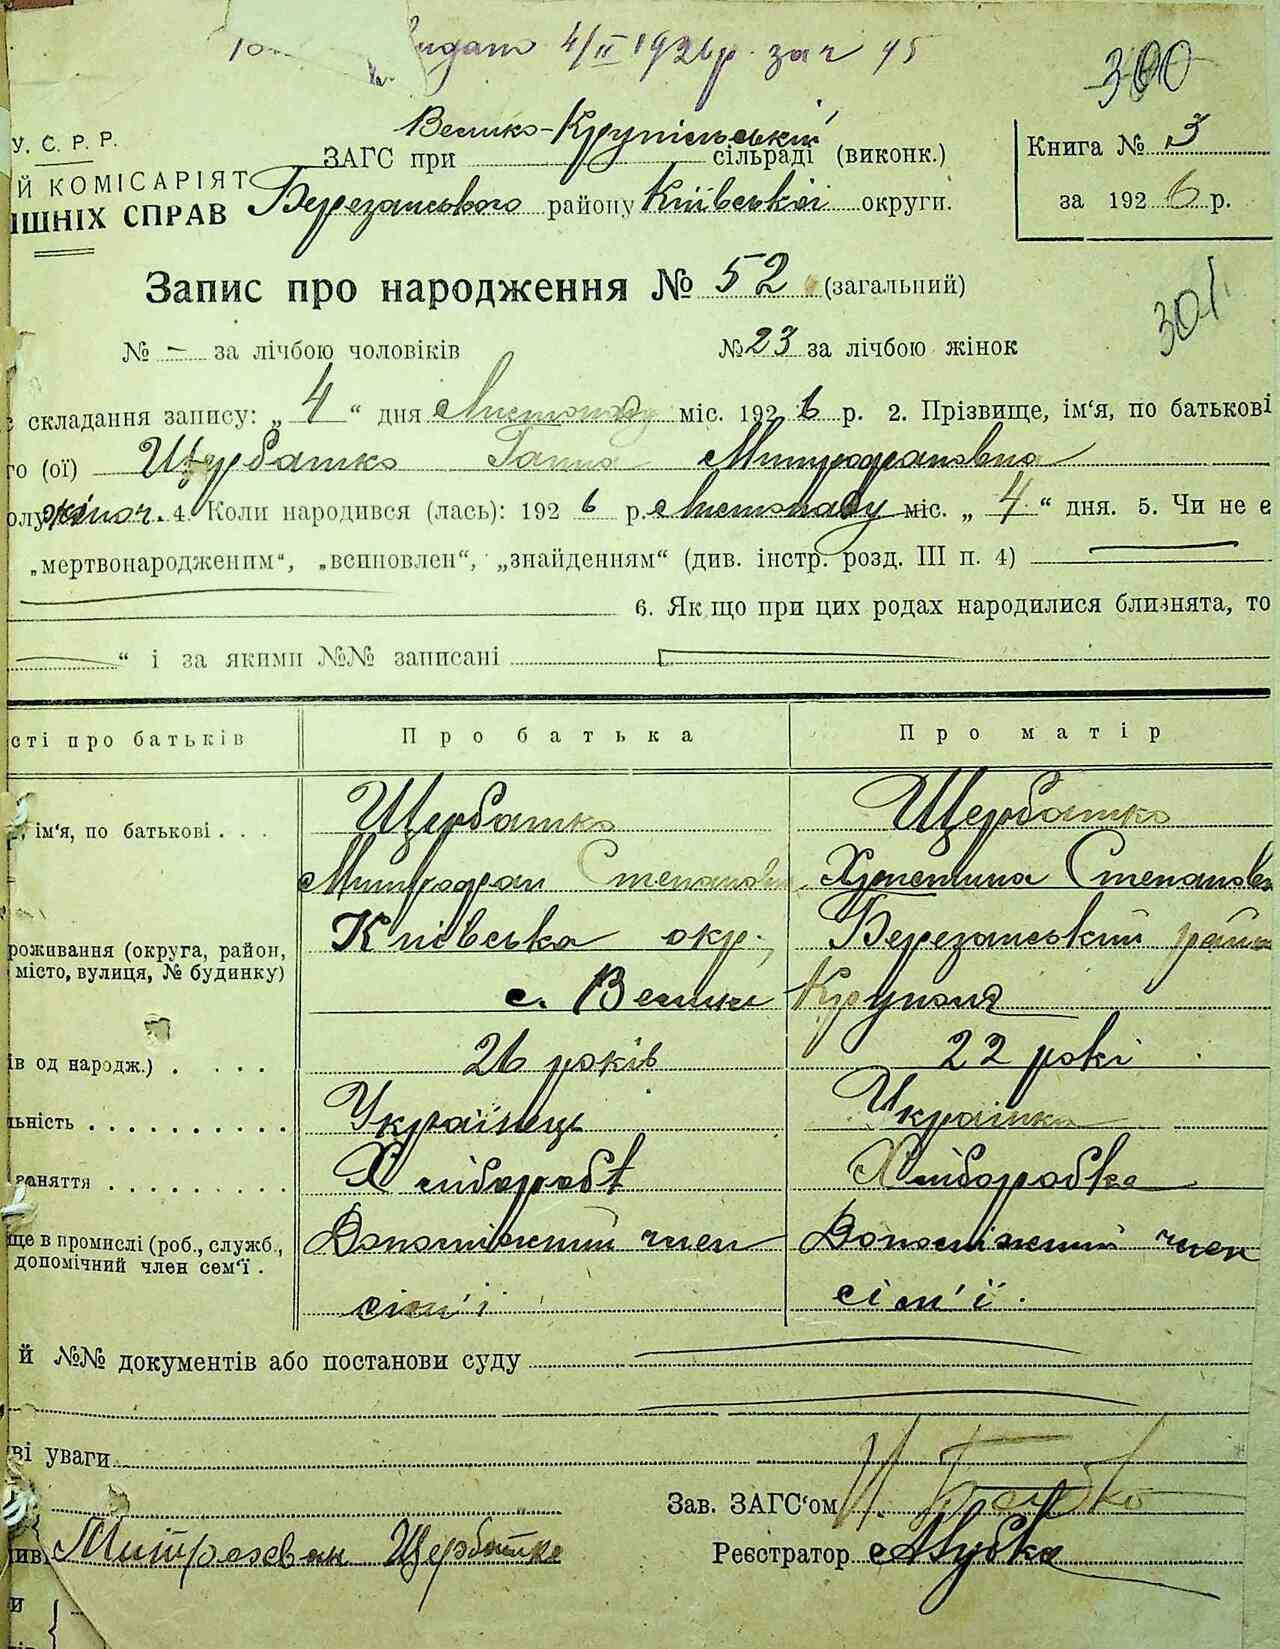 видано 4/II 1926р. за № 45
300
У. С. Р. Р.
Й КОМІСАРІЯТ
ІШНІХ СПРАВ
ЗАГС при Велико-Крупільській сільраді (виконк.)
Березанського району Київської округи.
Книга № 3
за 1926 р.
Запис про народження № 52 (загальний)
301
№ - за лічбою чоловіків №23 за лічбою жінок
складання запису: „4“ дня Листопаду міс. 1926 р. 2. Прізвище, ім‘я, по батькові
го (ої) Щербатко Ганна Митрофановна
олу жіноч. 4. Коли народився (лась): 1926 р. Листопаду міс. „4“ дня. 5. Чи не є
„мертвонародженим“, „всиновлен“, „знайденням“ (див. інстр. розд. III п. 4)
6. Як що при цих родах народилися близнята, то
“ і за якими №№ записані
сті про батьків Про батька Про матір
ім‘я, по батькові . . . Щербатко Щербатко
Митрофан Степанович Христина Степановн
роживання (округа, район, Київська окр. Березанський район
місто, вулиця, № будинку)
с. Велика Крупіля
ів од народж.) . . . . 26 років 22 рокі
льність . . . . . . . . . . Українець Українка
заняття . . . . . . . . . Хлібороб Хліборобка
ще в промислі (роб., служб., Допоміжний член Допоміжний член
допомічний член сем‘ї . сім'ї сім'ї.
й №№ документів або постанови суду
ві уваги
Зав. ЗАГС‘ом
ив Митрофан Щербатко Реєстратор
и